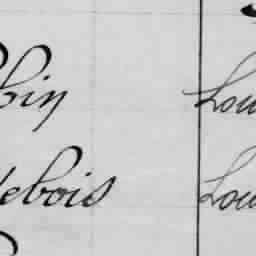 bin Lou
debois Lou